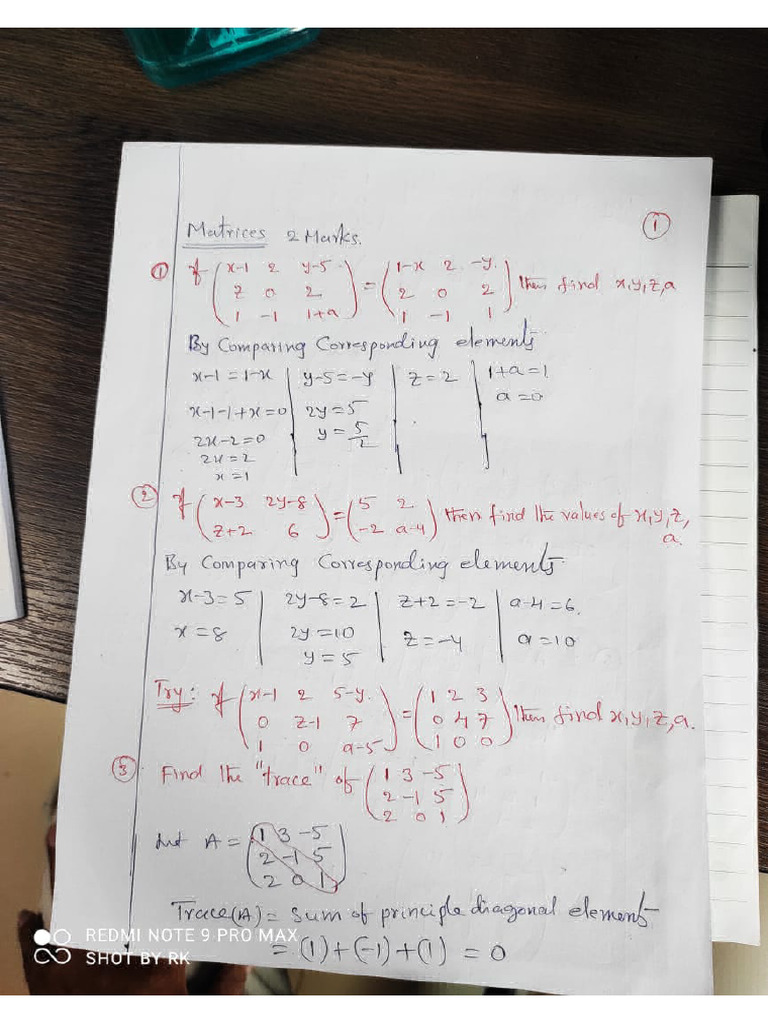 Matrices 2 Marks.
①
① If (x-1 2 y-5
z 0 2
1 -1 1+a) = (1-x 2 -y
2 0 2
1 -1 1) then find x,y,z,a
By Comparing Corresponding elements
x-1=1-x | y-5=-y | z=2 | 1+a=1
x-1-1+x=0 | 2y=5 | a=0
2x-2=0 | y=5/2
2x=2
x=1
② If (x-3 2y-8
z+2 6) = (5 2
-2 a-4) then find the values of x,y,z,
a.
By Comparing Corresponding elements
x-3=5 | 2y-8=2 | z+2=-2 | a-4=6.
x=8 | 2y=10 | z=-4 | a=10
y=5
Try: If (x-1 2 5-y
0 z-1 7
1 0 a-5) = (1 2 3
0 4 7
1 0 0) then find x,y,z,a.
③ Find the "trace" of (1 3 -5
2 -1 5
2 0 1)
Let A = (1 3 -5
2 -1 5
2 0 1)
Trace(A) = Sum of principle diagonal elements
= (1)+(-1)+(1) = 0
REDMI NOTE 9 PRO MAX
SHOT BY RK